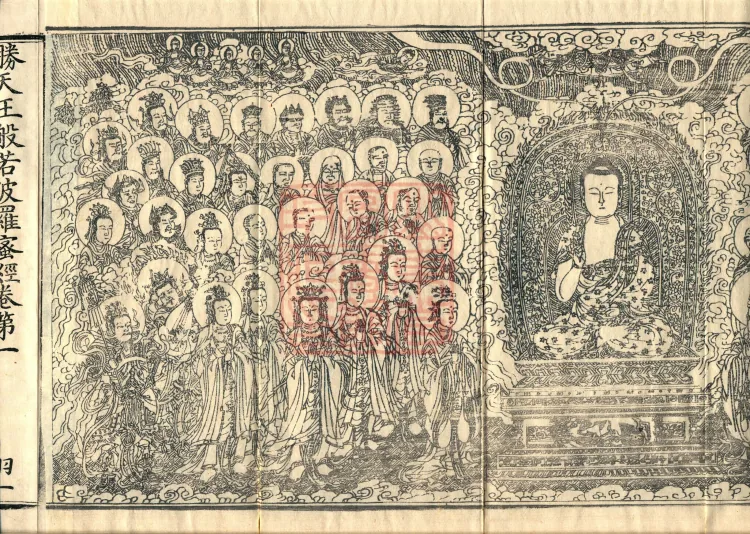 勝天王般若波羅蜜經卷第一
羽一